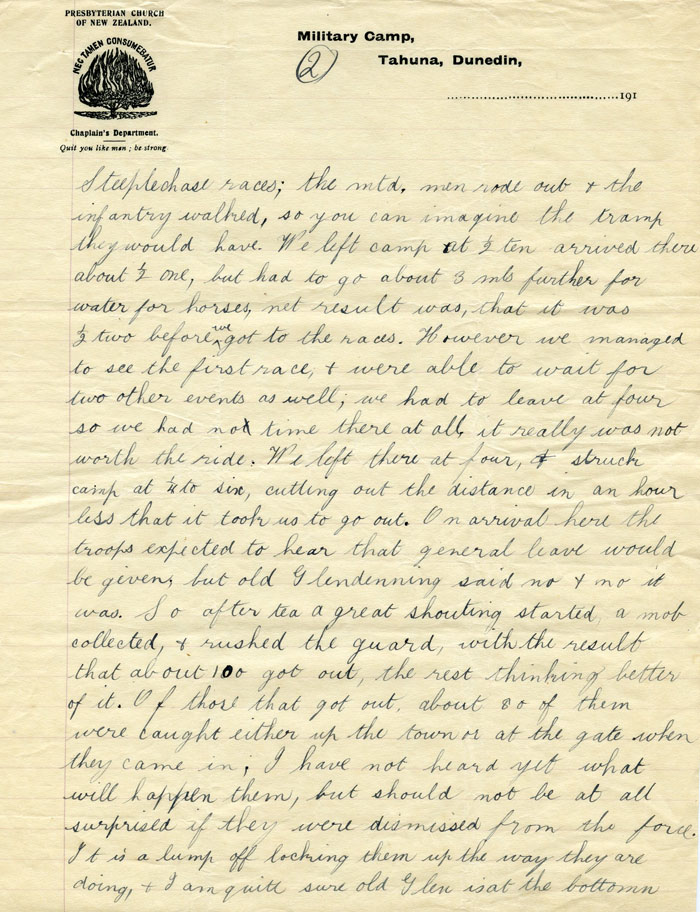 PRESBYTERIAN CHURCH
OF NEW ZEALAND.
NEC TAMEN CONSUMEBATUR
Chaplain's Department.
Quit you like men; be strong.
Military Camp,
(2) Tahuna, Dunedin,
191
Steeplechase races; the mtd. men rode out & the
infantry walked, so you can imagine the tramp
they would have. We left camp at ½ ten arrived there
about ½ one, but had to go about 3 mls further for
water for horses, net result was, that it was
½ two before we got to the races. However we managed
to see the first race, & were able to wait for
two other events as well; we had to leave at four
so we had not time there at all, it really was not
worth the ride. We left there at four, & struck
camp at ¼ to six, cutting out the distance in an hour
less that it took us to go out. On arrival here the
troops expected to hear that general leave would
be given, but old Glendenning said no & no it
was. So after tea a great shouting started, a mob
collected, & rushed the guard, with the result
that about 100 got out, the rest thinking better
of it. Of those that got out, about 80 of them
were caught either up the town or at the gate when
they came in; I have not heard yet what
will happen them, but should not be at all
surprised if they were dismissed from the force.
It is a lump off locking them up the way they are
doing, & I am quite sure old Glen is at the bottomn